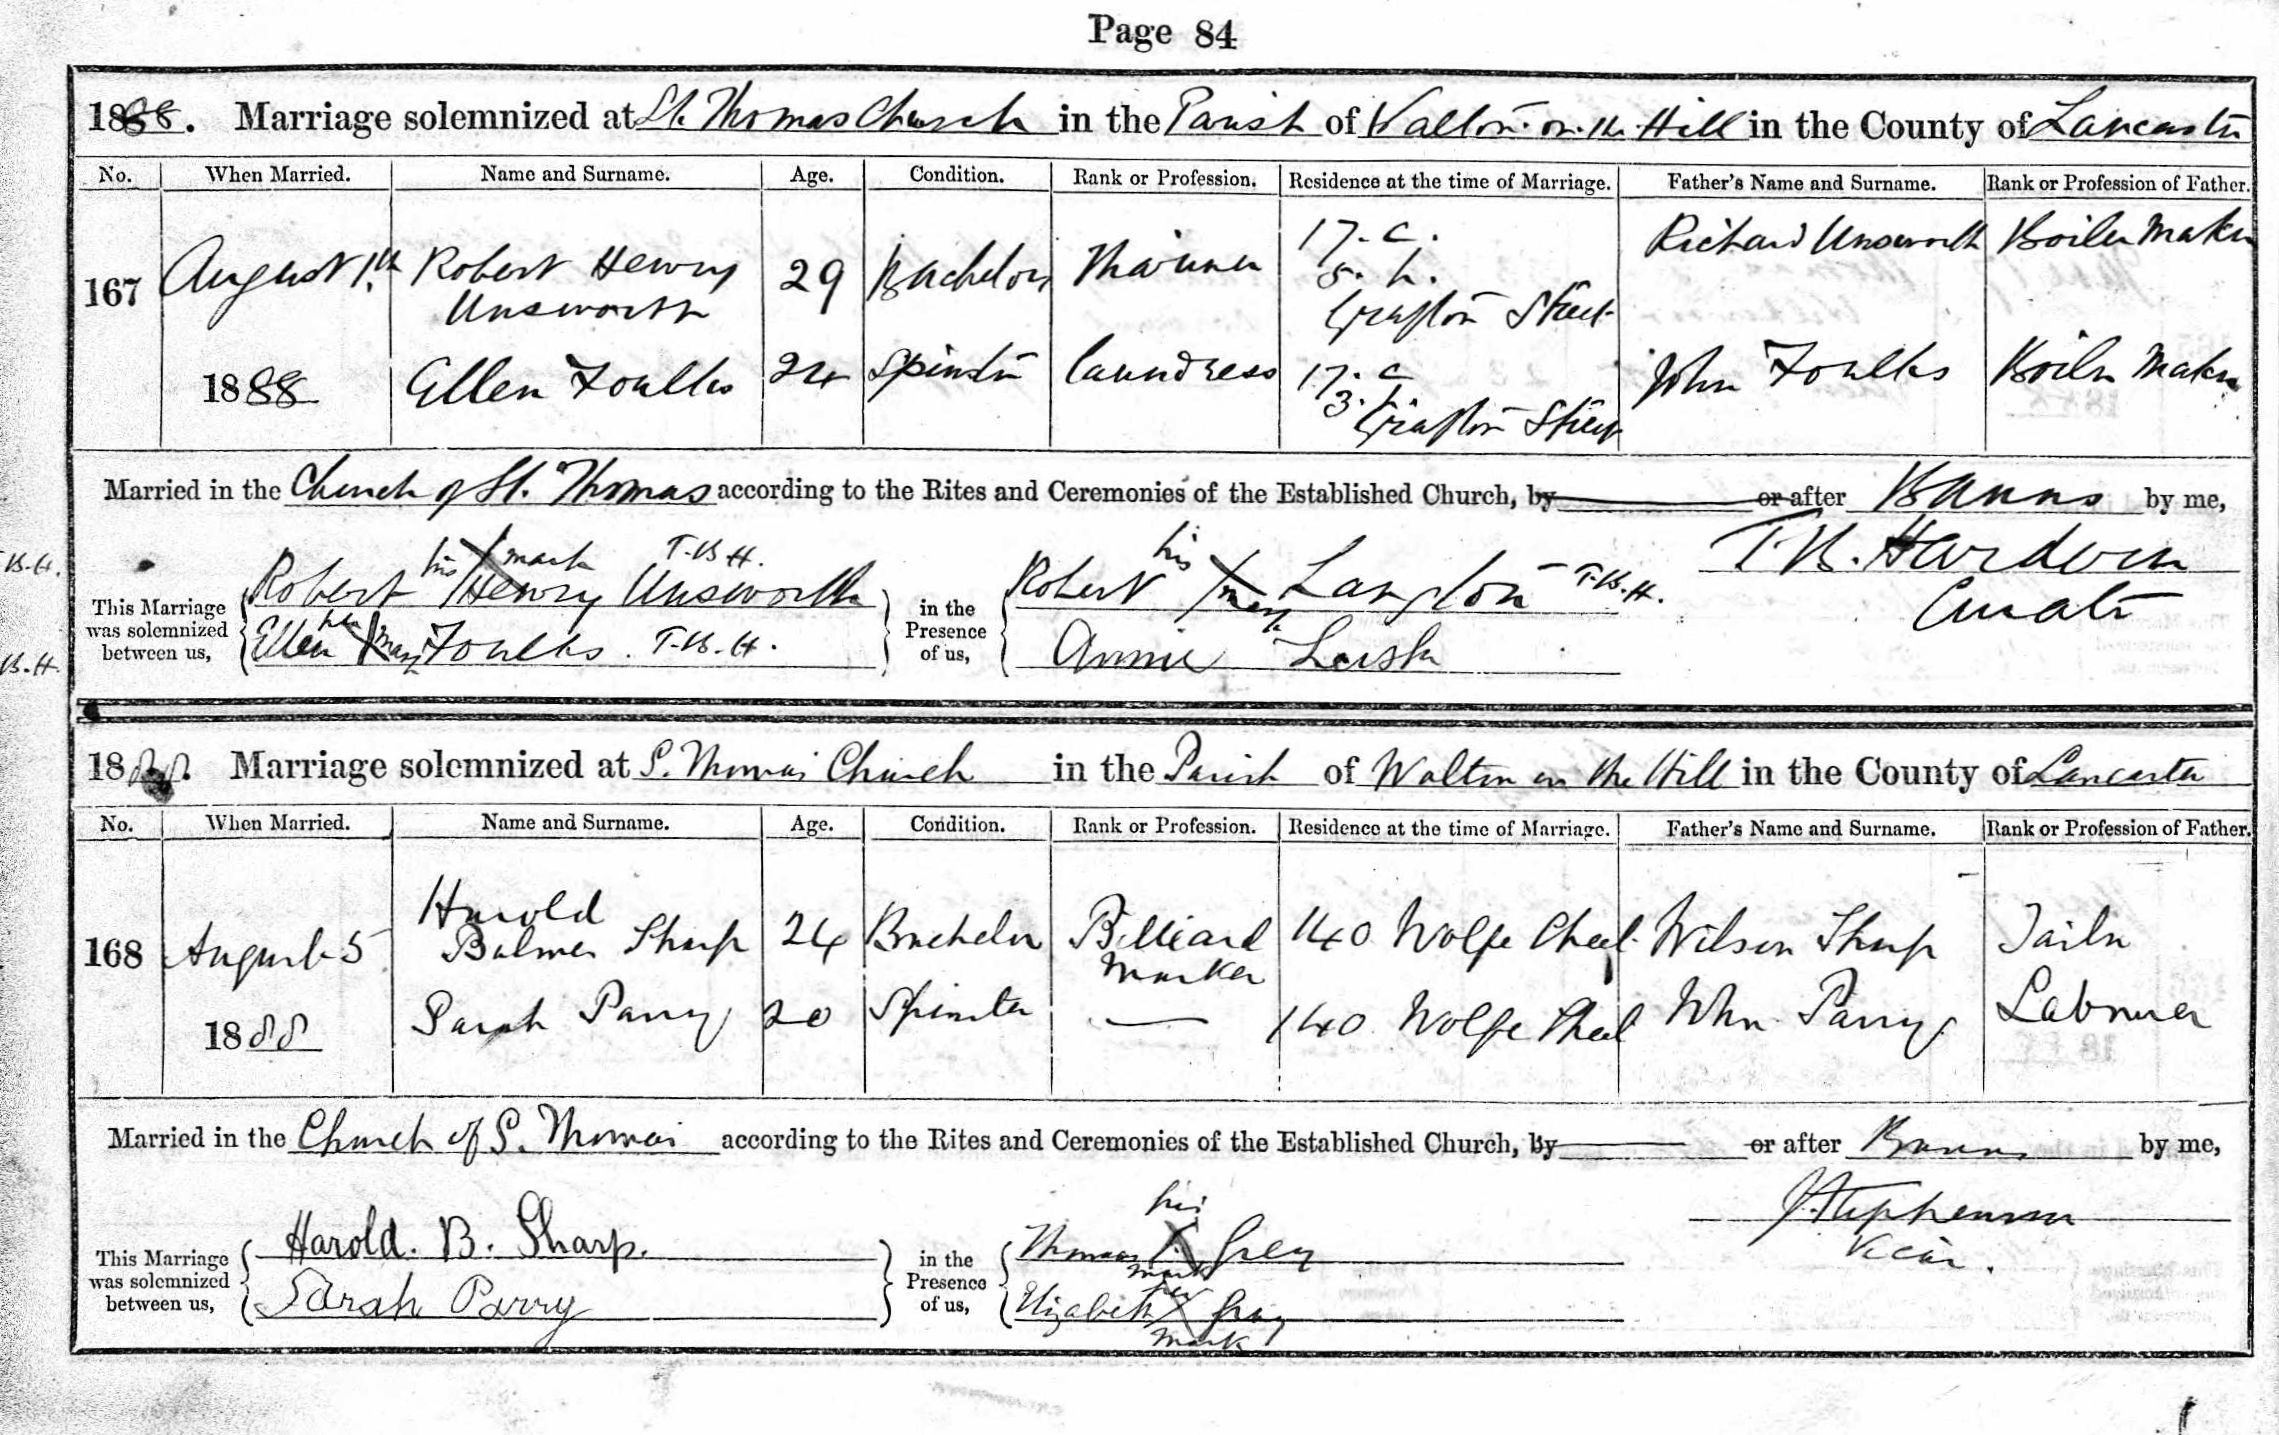 Page 84
1888. Marriage solemnized at St. Thomas Church in the Parish of Walton-on-the-Hill in the County of Lancaster
No. When Married. Name and Surname. Age. Condition. Rank or Profession. Residence at the time of Marriage. Father's Name and Surname. Rank or Profession of Father.
167 August 1st Robert Henry Unsworth 29 Bachelor Mariner 17. c. 5. h. Grafton Street Richard Unsworth Boiler Maker
1888 Ellen Foulkes 24 Spinster Laundress 17. c 3. h. Grafton Street John Foulkes Boiler Maker
Married in the Church of St. Thomas according to the Rites and Ceremonies of the Established Church, by or after Banns by me,
T. B. Hardern
Curate
This Marriage was solemnized between us, Robert Henry his X mark Unsworth T.B.H. in the Presence of us, Robert his X mark Langton T.B.H.
Ellen her X mark Foulkes. T.B.H. Annie
B.H.
B.H.
1888. Marriage solemnized at S. Thomas Church in the Parish of Walton on the Hill in the County of Lancaster
No. When Married. Name and Surname. Age. Condition. Rank or Profession. Residence at the time of Marriage. Father's Name and Surname. Rank or Profession of Father.
168 August 5 Harold Bulmer Sharp 24 Bachelor Billiard Marker 140 Wolfe Street Wilson Sharp Tailor
1888 Sarah Parry 20 Spinster — 140 Wolfe Street John Parry Labourer
Married in the Church of S. Thomas according to the Rites and Ceremonies of the Established Church, by or after Banns by me,
J. Stephenson
Vicar.
This Marriage was solemnized between us, Harold. B. Sharp. in the Presence of us, Thomas his X mark Grey
Sarah Parry Elizabeth her X mark Gray